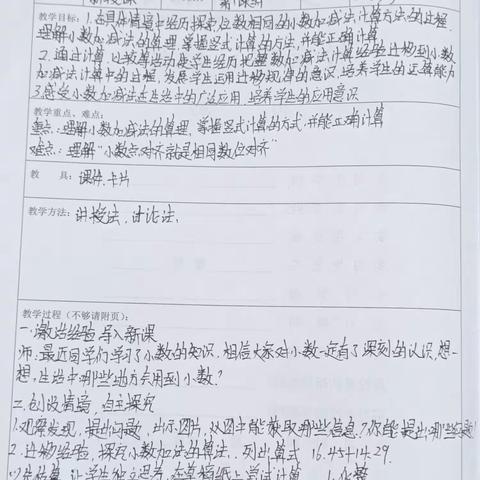 教学目标:1.在具体情境中经历探索位数相同的小数加减法计算方法的过程.
理解小数加减法的算理,掌握竖式计算的方法,并能正确计算
2.通过计算、比较等活动
加减法计算中的过程,发展学生运用迁移规律的意识,培养学生的运算能力
3.感受小数加减法在生活中的广泛应用,培养学生的应用意识
教学重点、难点:
重点:理解小数加减法的算理,掌握竖式计算的方式,并能正确计算
难点:理解“小数点对齐就是相同数位对齐”
教 具:课件.卡片
教学方法:讲授法.讨论法.
教学过程(不够请附页):
一.激活经验,导入新课
师:最近同学们学习了小数的知识.相信大家对小数一定有了深刻的认识,想一
想,生活中哪些地方会用到小数?
二.创设情境,自主探究
1.观察发现,提出问题,出示图片,从图中能获取哪些信息?你能提出哪些问题
2.迁移经验,探究小数加法的算法.列出算式 16.45+14.29.